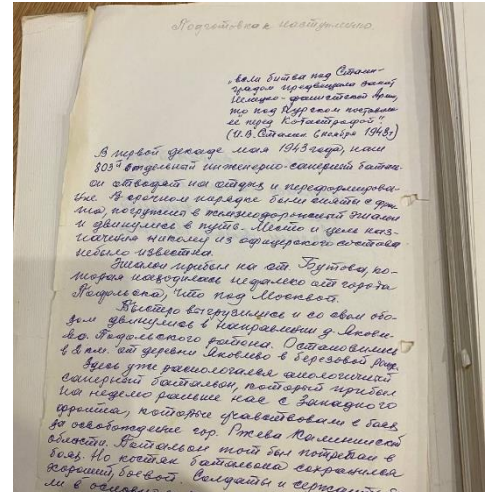 Подготовка к наступлению.
„если битва под Сталин-
градом предвещала закат
Немецко-фашистской Армии,
то под Курском поставила
её перед Катастрофой".
(И.В. Сталин 6 ноября 1943г)
В первой декаде мая 1943 года, наш
803й отдельный инженерно-саперный баталь-
он отводят на отдых и переформирова-
ние. В срочном порядке были сняты с фрон-
та, погружены в железнодорожный эшалон
и двинулись в путь. Место и цель наз-
начения никому из офицерского состава
небыло известна.
Эшалон прибыл на ст. Бутова, ко-
торая находилась недалеко от города
Подольска, что под Москвой.
Быстро выгрузились и со своим обо-
зом двинулись в направлении д. Яковле-
во. Подольского района. Остановились
в 2 км. от деревни Яковлево в березовой роще.
Здесь уже располагался анологичный
саперный батальон, который прибыл
на неделю раньше нас с Западного
фронта, которые учавствовали в боях
за освобождение гор. Ржева Калининской
области. Батальон тот был потрепан в
боях. Но костяк батальона сохранился
хороший, боевой. Солдаты и сержанты б
ли в